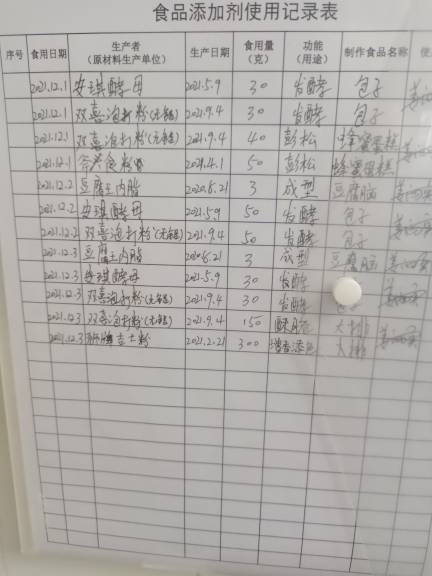 食品添加剂使用记录表
序号 食用日期 生产者（原材料生产单位） 生产日期 食用量（克） 功能（用途） 制作食品名称 使
2021.12.1 安琪酵母 2021.5.9 30 发酵 包子
2021.12.1 双喜泡打粉(无铝) 2021.9.4 30 发酵 包子
2021.12.1 双喜泡打粉(无铝) 2021.9.4 40 彭松 蜂蜜蛋糕
2021.12.1 食粉 2021.4.1 50 彭松 蜂蜜蛋糕
2021.12.2 豆腐王内脂 2020.8.21 3 成型 豆腐脑
2021.12.2 安琪酵母 2021.5.9 50 发酵 包子
2021.12.2 双喜泡打粉(无铝) 2021.9.4 50 发酵 包子
2021.12.3 豆腐王内脂 2020.8.21 3 成型 豆腐脑
2021.12.3 安琪酵母 2021.5.9 30 发酵
2021.12.3 双喜泡打粉(无铝) 2021.9.4 30 发酵
2021.12.3 双喜泡打粉(无铝) 2021.9.4 150 酥脆
2021.12.3 吉士粉 2021.2.21 300 增香添色